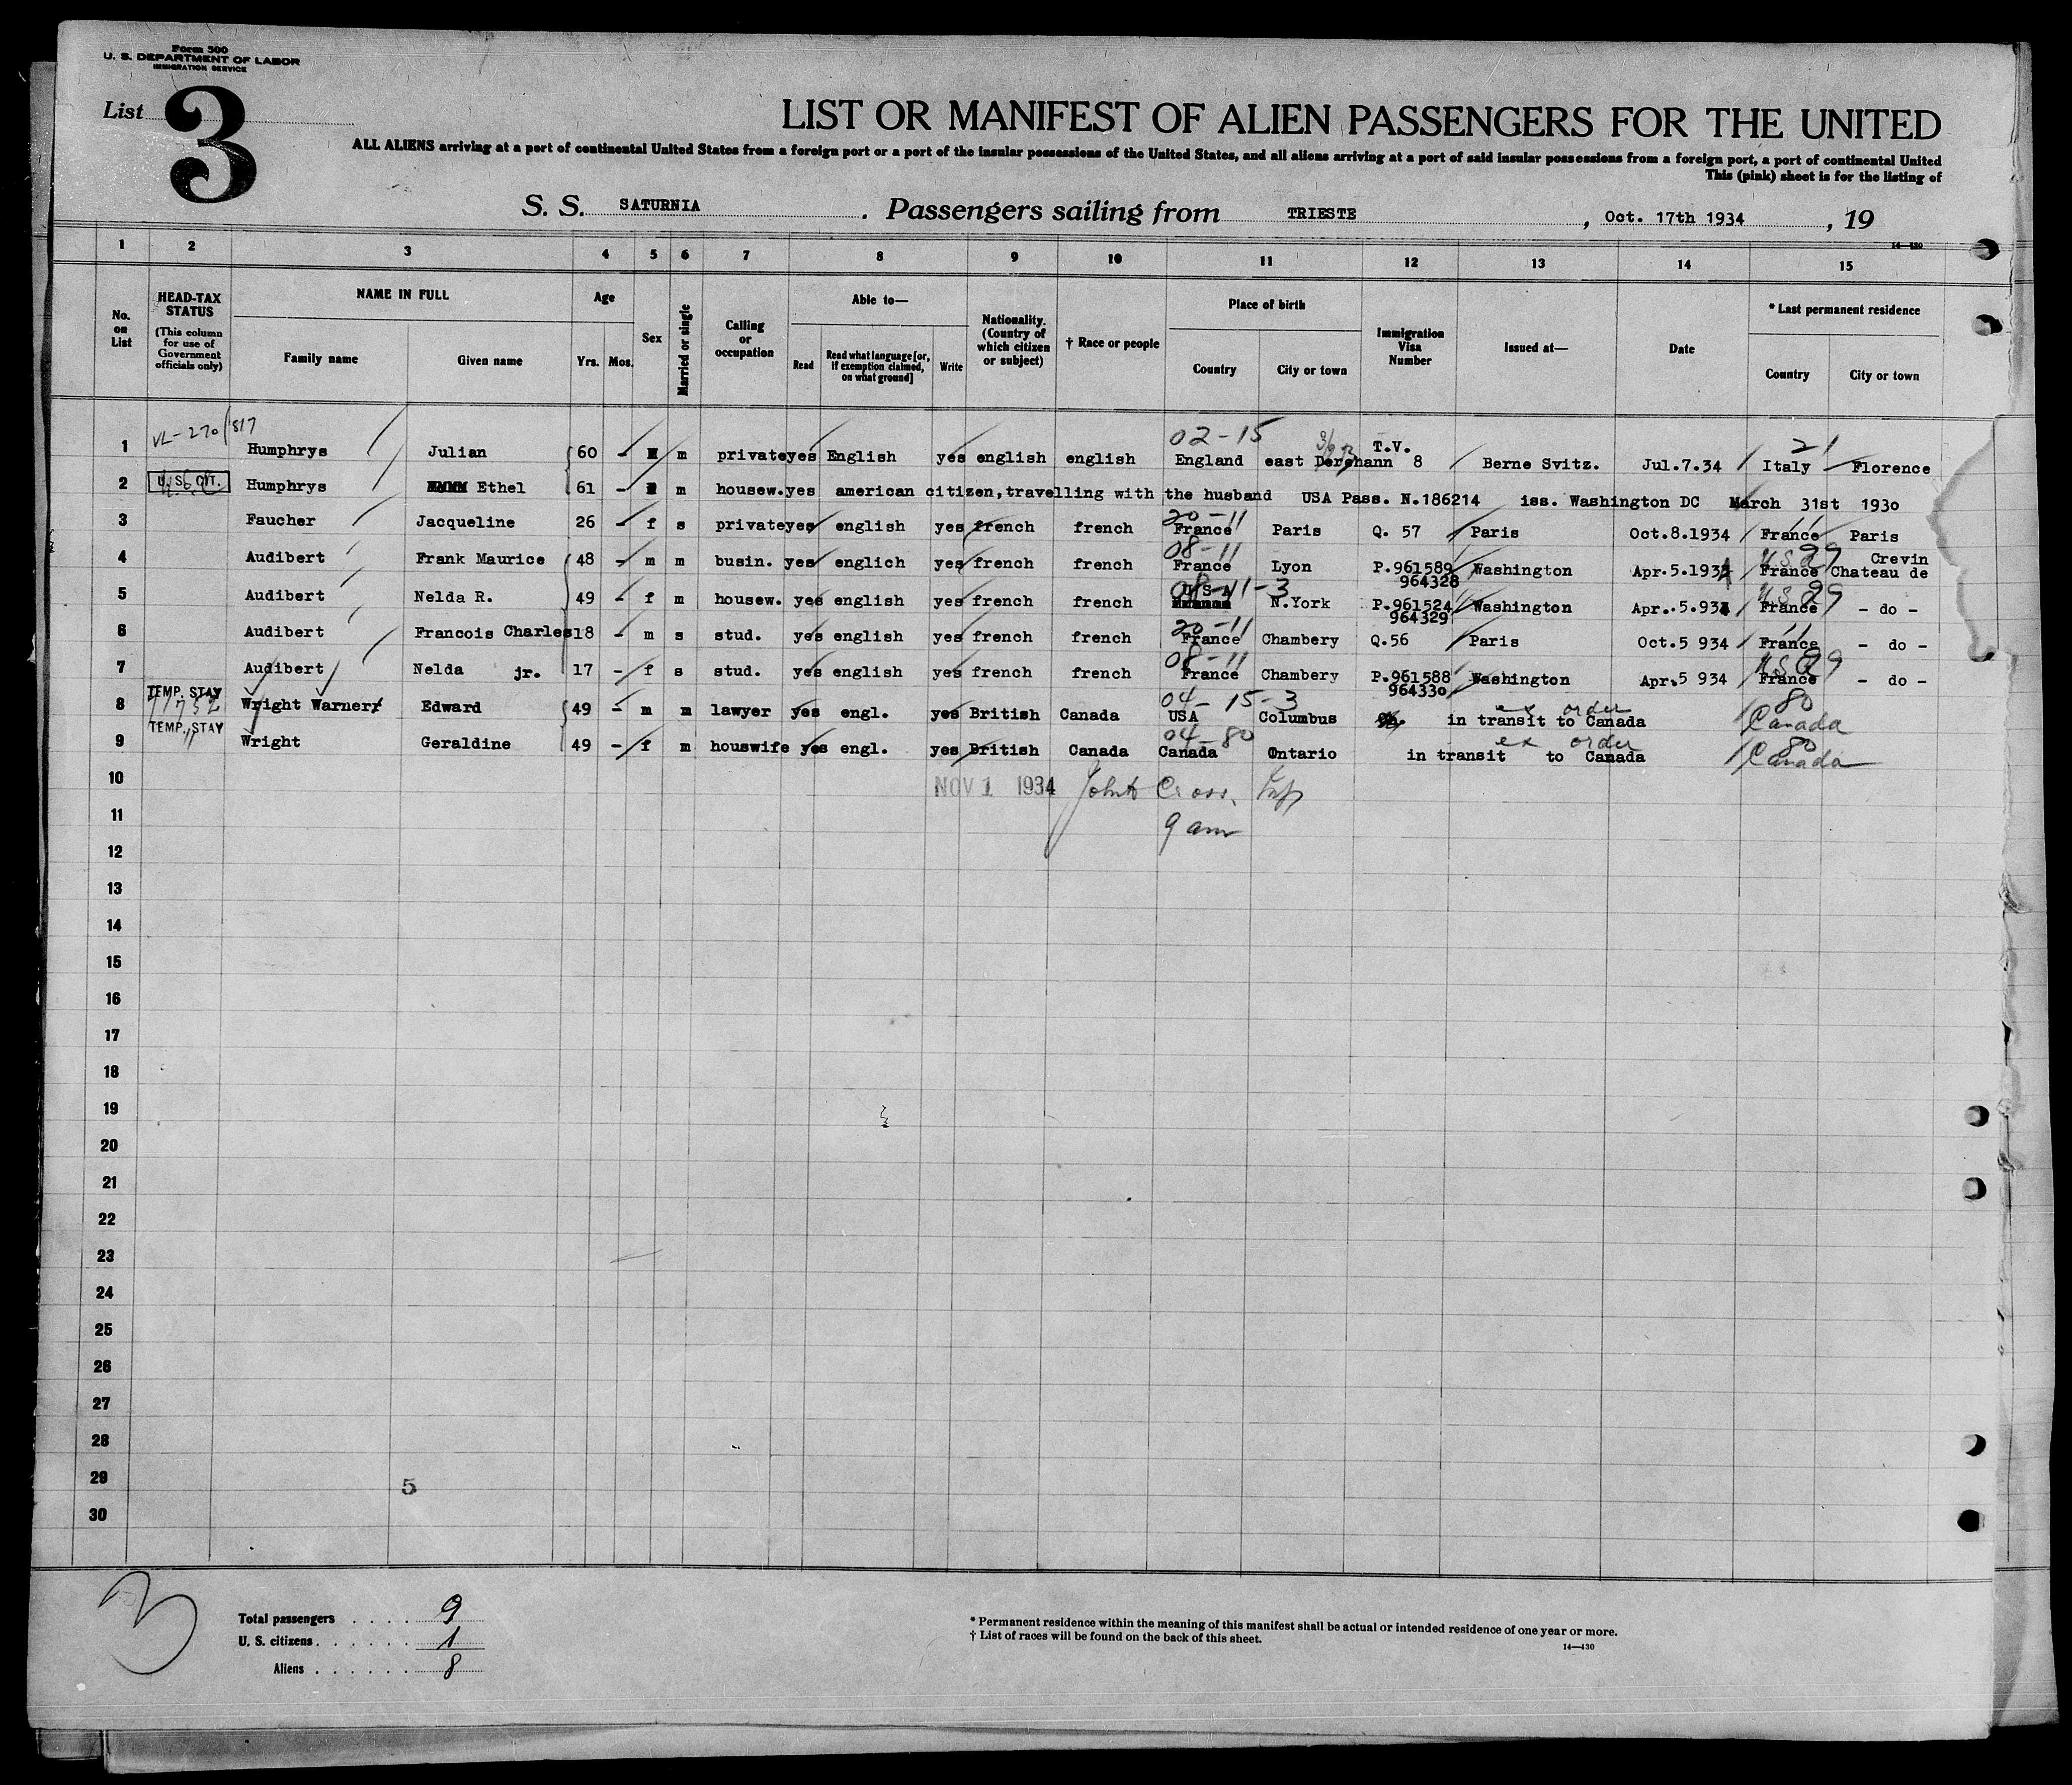 Form 500
U. S. DEPARTMENT OF LABOR
IMMIGRATION SERVICE
List 3
LIST OR MANIFEST OF ALIEN PASSENGERS FOR THE UNITED
ALL ALIENS arriving at a port of continental United States from a foreign port or a port of the insular possessions of the United States, and all aliens arriving at a port of said insular possessions from a foreign port, a port of continental United
This (pink) sheet is for the listing of
S. S. SATURNIA. Passengers sailing from TRIESTE, Oct. 17th 1934, 19
14—430
1 2 3 4 5 6 7 8 9 10 11 12 13 14 15
No. on List
HEAD-TAX STATUS (This column for use of Government officials only)
NAME IN FULL
Family name Given name
Age
Yrs. Mos.
Sex
Married or single
Calling or occupation
Able to—
Read Read what language [or, if exemption claimed, on what ground] Write
Nationality. (Country of which citizen or subject)
† Race or people
Place of birth
Country City or town
Immigration Visa Number
Issued at—
Date
* Last permanent residence
Country City or town
VL-270/817 02-15 T.V. 21
1 Humphrys Julian 60 - m private yes English yes english english England east Derehann 8 Berne Svitz. Jul.7.34 Italy Florence
2 U.S. CIT. Humphrys Ethel 61 - m housew. yes american citizen, travelling with the husband USA Pass. N.186214 iss. Washington DC March 31st 1930
20-11 11
3 Faucher Jacqueline 26 - f s private yes english yes french french France Paris Q. 57 Paris Oct.8.1934 France Paris
08-11 U.S. 29 Crevin
4 Audibert Frank Maurice 48 - m m busin. yes englich yes french french France Lyon P.961589 Washington Apr.5.1934 France Chateau de
964328
08-11-3 U.S.A U.S. 29
5 Audibert Nelda R. 49 - f m housew. yes english yes french french N.York P.961524 Washington Apr..5.934 France - do -
964329
20-11 11
6 Audibert Francois Charles 18 - m s stud. yes english yes french french France Chambery Q.56 Paris Oct.5 934 France - do -
08-11 U.S. 29
7 Audibert Nelda jr. 17 - f s stud. yes english yes french french France Chambery P.961588 Washington Apr.5 934 France - do -
964330
TEMP. STAY 04-15-3 ex order 80
8 Wright Warner Edward 49 - m m lawyer yes engl. yes British Canada USA Columbus in transit to Canada Canada
TEMP. STAY 04-80 ex order 80
9 Wright Geraldine 49 - f m houswife yes engl. yes British Canada Canada Ontario in transit to Canada Canada
10 NOV 1 1934 Cross, Insp
11 9 am
12
13
14
15
16
17
18
19
20
21
22
23
24
25
26
27
28
29 5
30
3
Total passengers . . . . 9
U. S. citizens . . . . . . 1
Aliens . . . . . . 8
* Permanent residence within the meaning of this manifest shall be actual or intended residence of one year or more.
† List of races will be found on the back of this sheet.
14—430